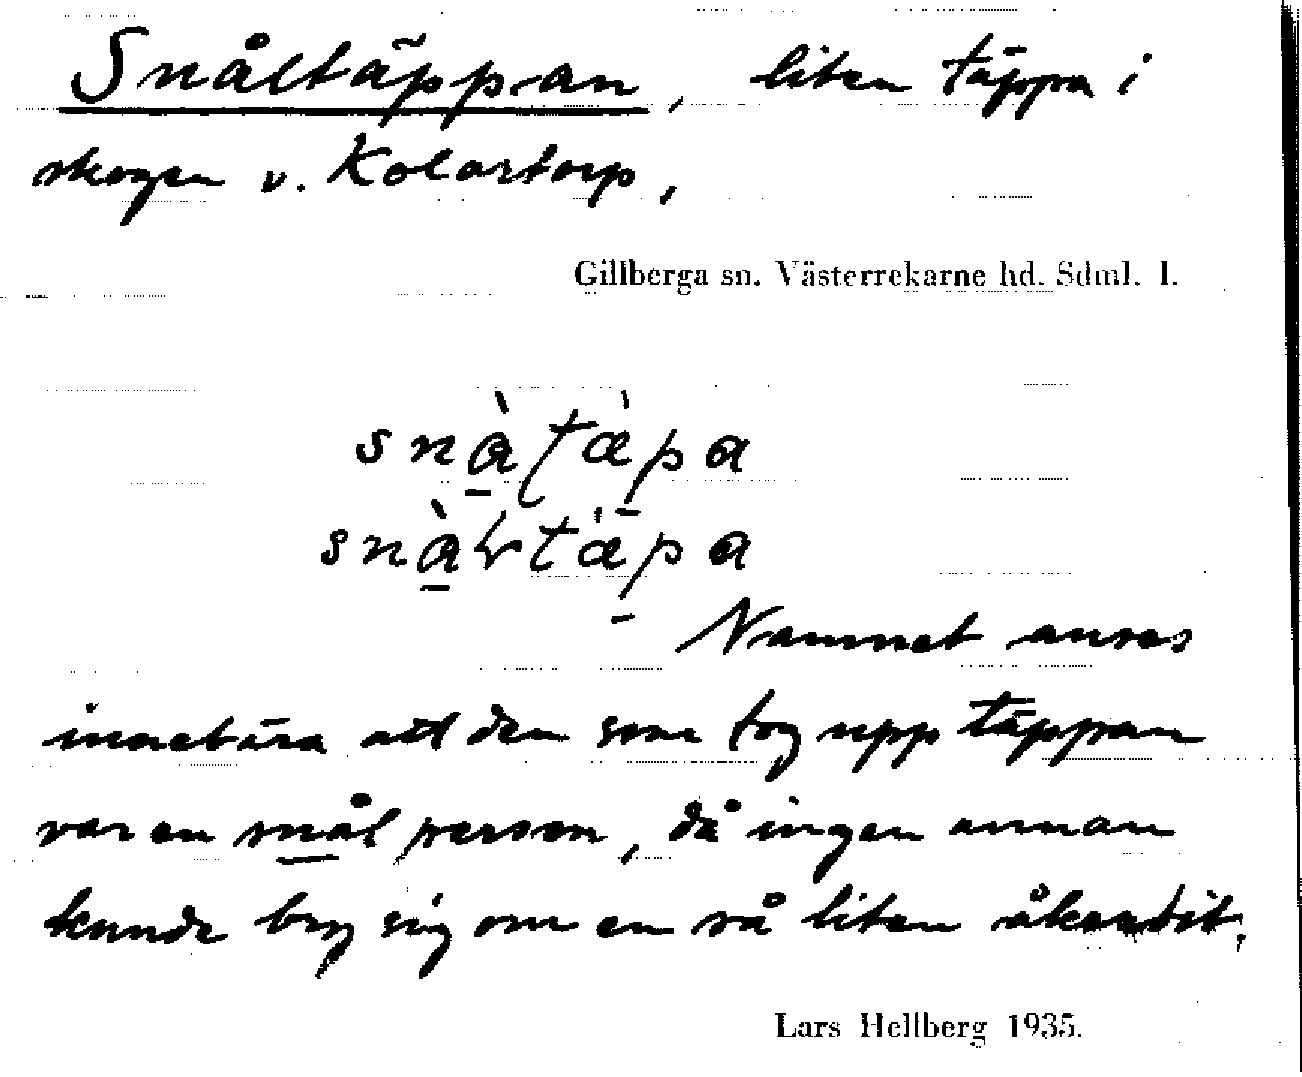 Snåltäppan, liten täppa i
skogen v. Kolartorp,
Gillberga sn. Västerrekarne hd. Sdml. l.
Namnet anses
innebära att den som tog upp täppan
var en snål person, då ingen annan
kunde bry sig om en så liten åkerbit.
Lars Hellberg 1935.